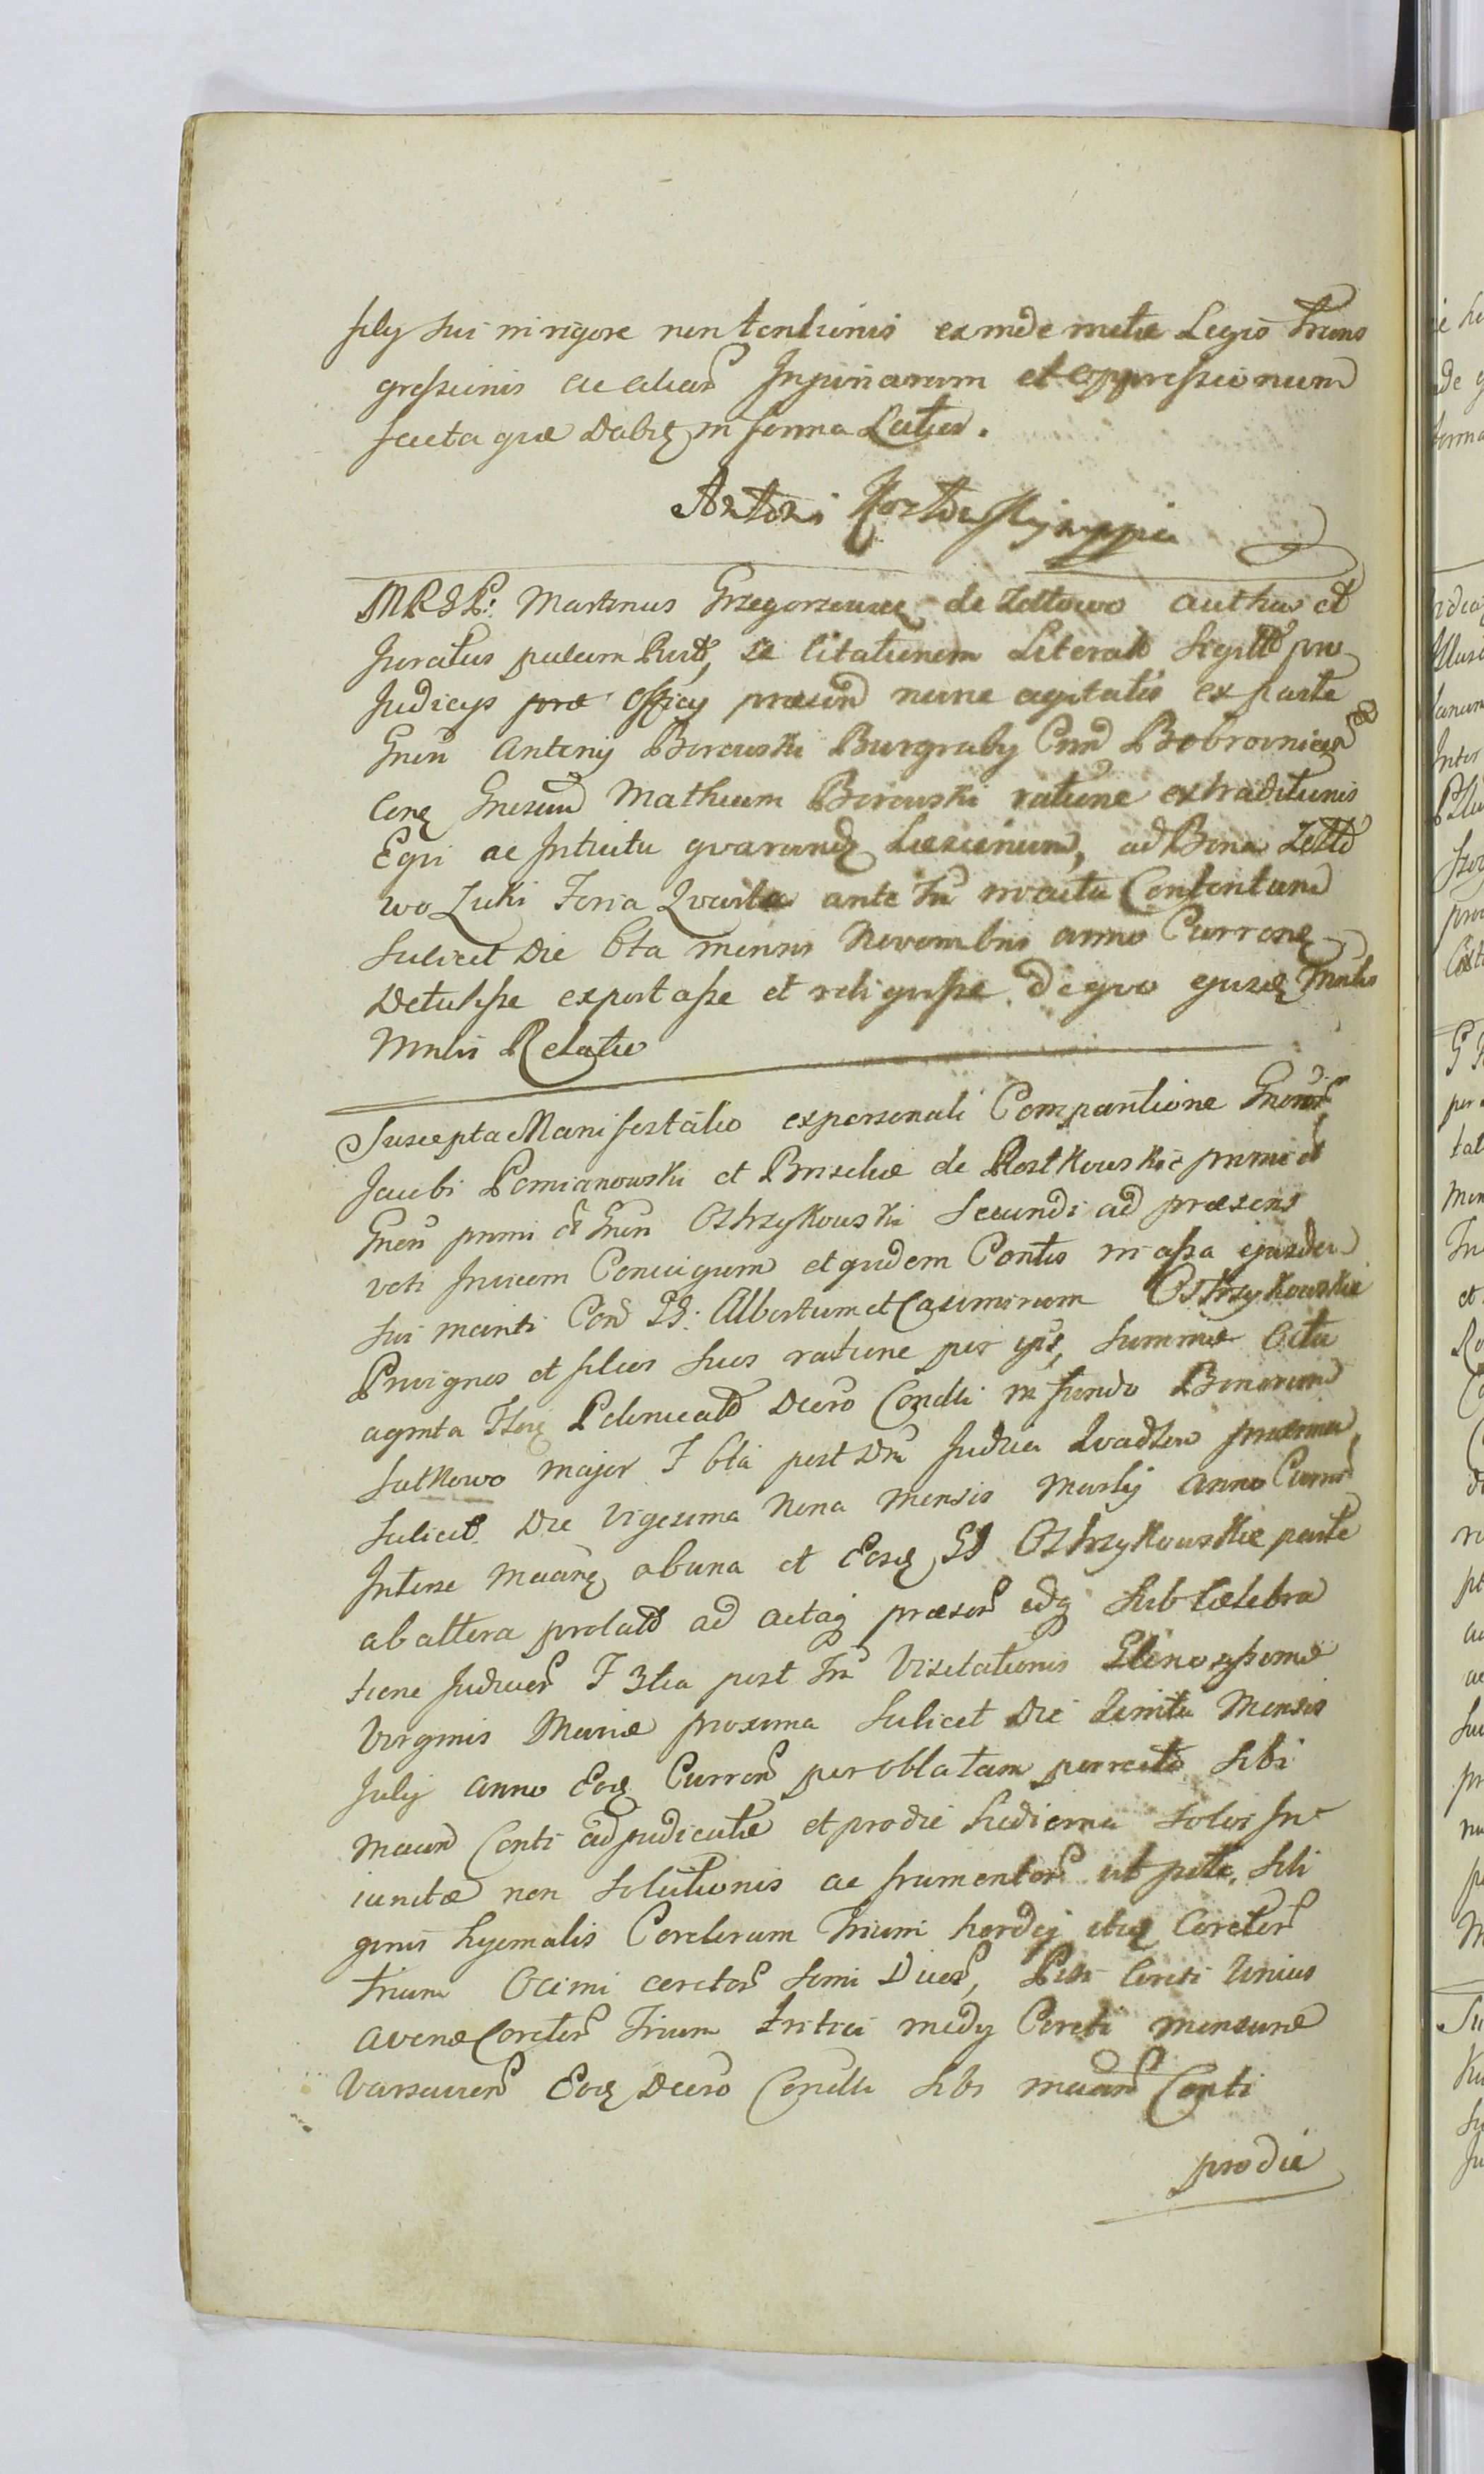 filij sui in rigore non tentionis exinde metu Legis Trans
gressionis ac aliar Injuriarum et oppressionum
facta quæ Dabit in forma Latior.
Antoni
MRGL: Martinus Grzegorzewicz de Zeltowo author et
Juratus palam Recog, se Citationem Literalē Sigillt pro
Judicijs præ Officij præsen nunc agitatis ex parte
Gnesi Antonij Borowski Burgrabij Cnn Bobrovnicen
Cong Gnesum Matheum Borowski ratione extraditionis
Equi ac Intuitu quarundq Læsionum, ad Bona Zelto
wo Luki Feria Quarta ante Fm in actu Contentam
Scilicet Die 6ta mensis Novembris anno Curren
Detulisse exportasse et reliquisse de quo ejusd Mnlis
Mnlis Relatio
Suscepta Manifestatio ex personali Comparitione Gneror
Jacobi Pomianowski et Brisches de Rostkowskie primi et
Gnesi primi et Gnsi Ostrzykowski Secundi ad præsens
voti Invicem Conjugum et quidem Contis in assa ejusdem
sui mariti Con GG: Albertum et Casimirum Ostrzykowskie
Privignos et filios suos ratione per eos, Summæ Octu
aginta Flor Polonicalt Decro Condli in fundo Bonorum
Sutkowo major F 6ta post Dm Judica Quadten proxima
Scilicet Die Vigesima Nona Mensis Martij anno Curren
Interse Maanq ab una et Eosq GG Ostrzykowskie parte
ab altera prolato ad actaq præsen edq sub Celebra
tione Judicior F 3tia post Fm Visitationis Glorosissimæ
Virginis Mariæ proxima Scilicet Die Quinta Mensis
July anno Eoq Curren per oblatam porrecto sibi
maan Conti adjudicatæ et pro die hodierna solvi In
iunctæ non solutionis ac frumentor ut pote, sili
ginis hyemalis Coretorum Trium hordej itiq Coretor
trium Ocimi coretor semi Duor, Pisi Coreti Unius
avenæ Coretor Trium Tritici medij Coreti mensuræ
Varsavien Eoq Decro Condli sibi maan Conti
pro die